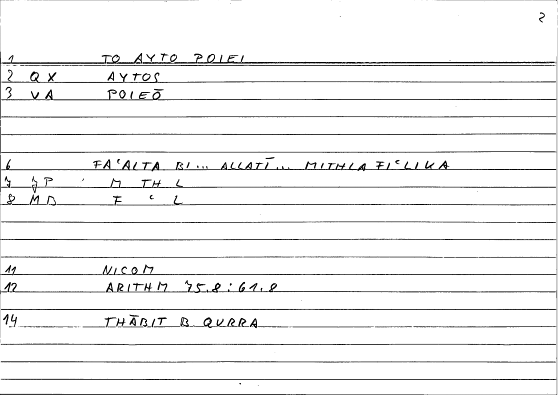 2
1 TO AYTO POIEI
2 QX AYTOS
3 VA POIEŌ
6 FAʿALTA BI... ALLATĪ... MITHLA FIʿLIKA
7 JP M TH L
8 MB F ʿ L
11 NICOM
12 ARITHM 75.8:61.8
14 THĀBIT B QURRA